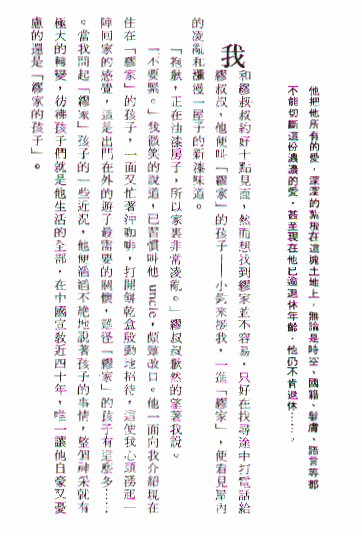 他把他所有的愛，深深的紮根在這塊土地上，無論是時空、國籍、髮膚、語言等都
不能切斷這份濃濃的愛，甚至現在他已適退休年齡，他仍不肯退休……。
我和繆叔叔約好十點見面，然而想找到繆家並不容易，只好在找尋途中打電話給
繆叔叔，他便叫「繆家」的孩子——小乾來接我，一進「繆家」，便看見屋內
的凌亂和瀰漫一屋子的新漆味道。
「抱歉，正在油漆房子，所以家裏非常凌亂。」繆叔叔歉然的望著我說。
「不要緊。」我微笑的說道，已習慣叫他 uncle，頗難改口。他一面向我介紹現在
住在「繆家」的孩子，一面又忙著沖咖啡，打開餅乾盒殷勤地招待，這使我心頭湧起一
陣回家的感覺，這是出門在外的遊子最需要的關懷，難怪「繆家」的孩子有這麼多……
。當我問起「繆家」孩子的一些近況，他便滔滔不絕地說著孩子的事情，整個神采就有
極大的轉變，彷彿孩子們就是他生活的全部，在中國宣教近四十年，唯一讓他自豪又憂
慮的還是「繆家的孩子」。